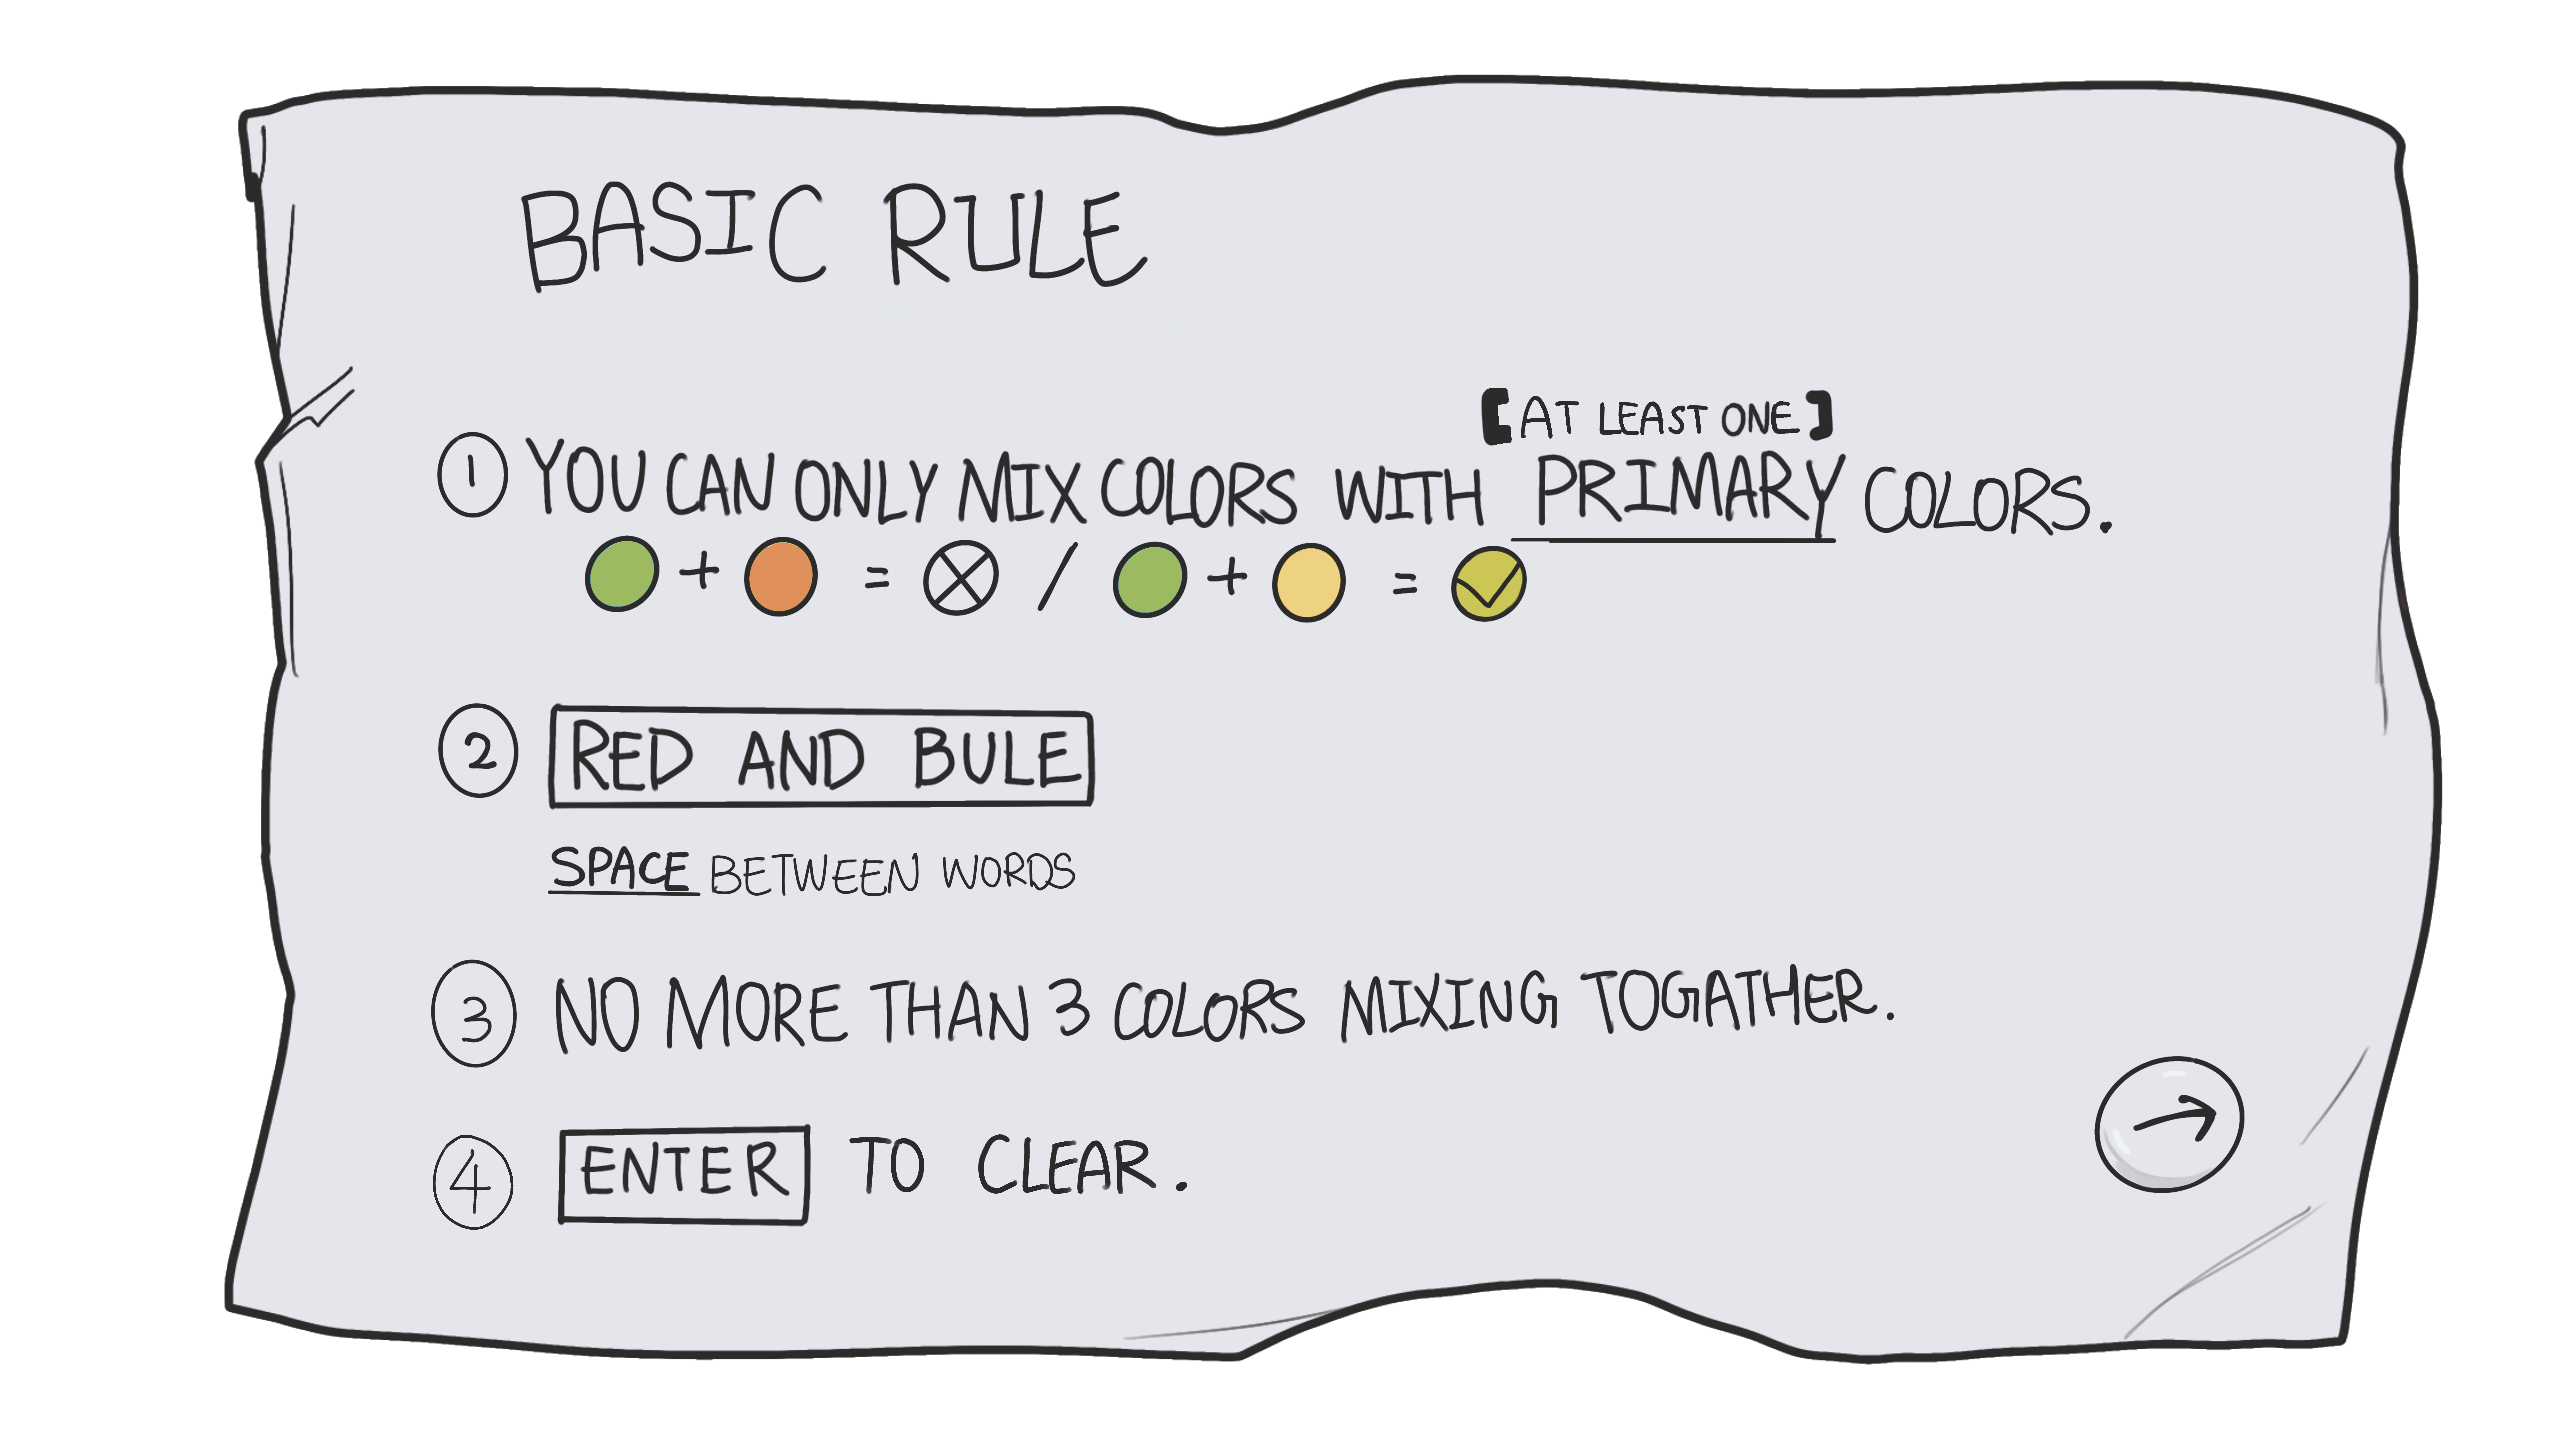 BASIC RULE
[AT LEAST ONE]
1 YOU CAN ONLY MIX COLORS WITH PRIMARY COLORS.
+ = / + =
2 RED AND BULE
SPACE BETWEEN WORDS
3 NO MORE THAN 3 COLORS MIXING TOGATHER.
4 ENTER TO CLEAR.